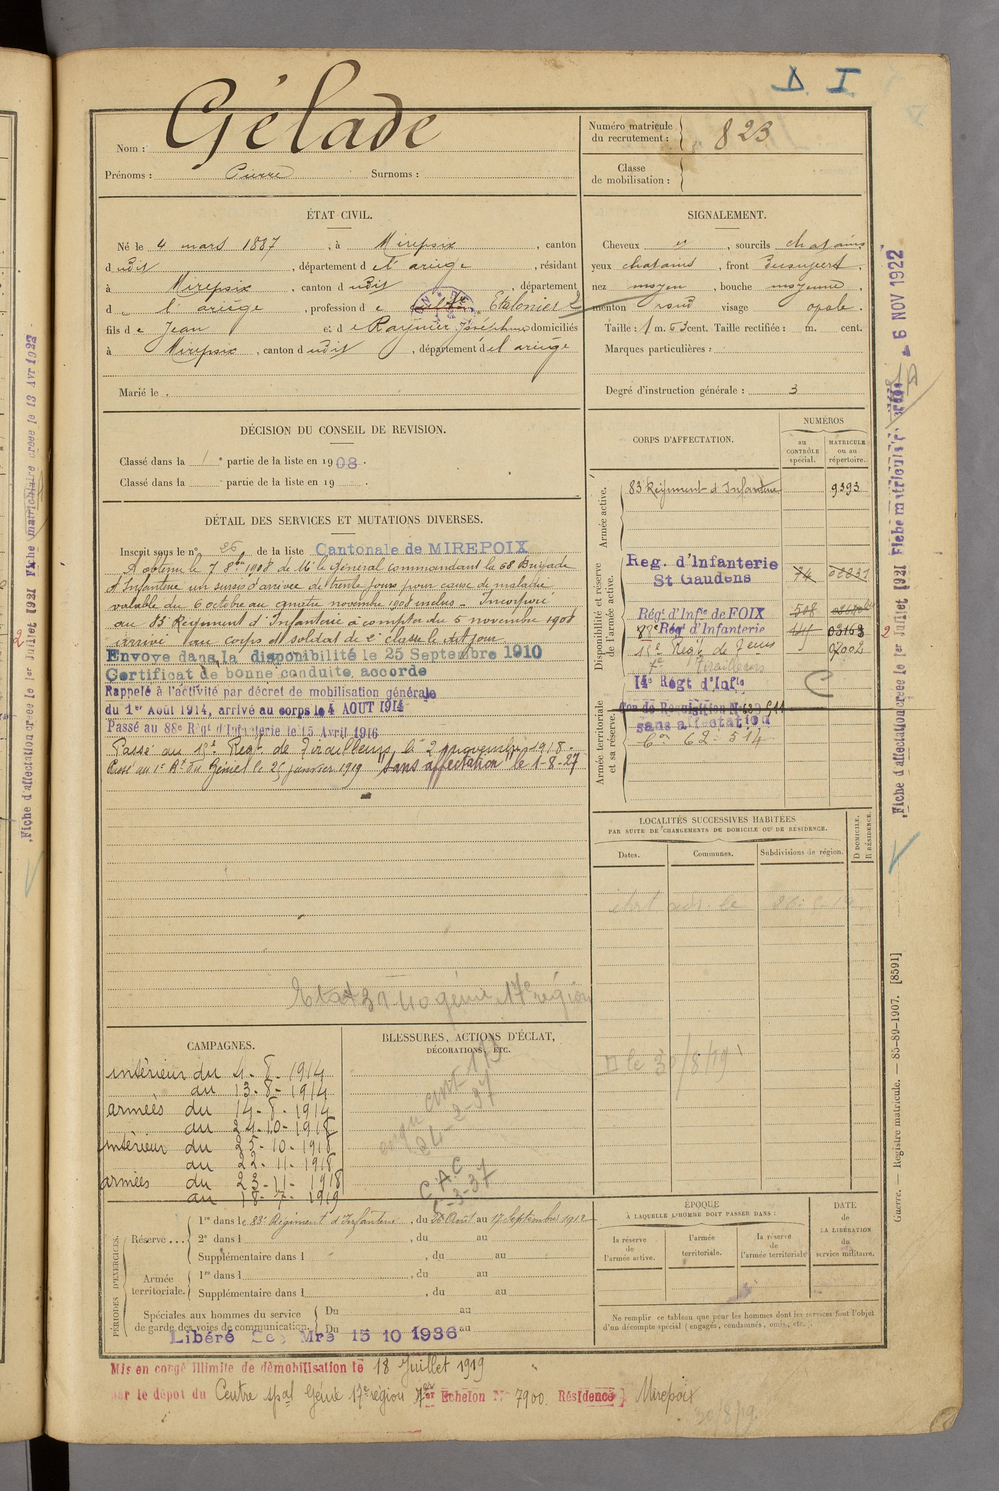 D. I.
Nom : Gélade
Prénoms : Pierre Surnoms :
Numéro matricule du recrutement : 823
Classe de mobilisation :
ÉTAT CIVIL.
Né le 4 mars 1887, à Mirepoix, canton
dudit, département de l'ariège, résidant
à Mirepoix, canton dudit, département
d l'ariège, profession de
fils de Jean et de Raynier Joséphine domiciliés
à Mirepoix, canton dudit, département de l'ariège
Marié le
SIGNALEMENT.
Cheveux , sourcils chatains
yeux chatains, front Découvert.
nez moyen, bouche moyenne,
menton rond visage ovale.
Taille : 1 m. 63 cent. Taille rectifiée : m. cent.
Marques particulières :
Degré d'instruction générale : 3
DÉCISION DU CONSEIL DE REVISION.
Classé dans la 1e partie de la liste en 1908.
Classé dans la partie de la liste en 19 .
DÉTAIL DES SERVICES ET MUTATIONS DIVERSES.
Inscrit sous le n° 26 de la liste Cantonale de MIREPOIX
A obtenu le 7 8bre 1908 de Mr le Général commandant la 68 Brigade
d'Infanterie un sursis d'arrivée de trente jours pour cause de maladie
valable du 6 octobre au quatre novembre 1908 inclus. Incorporé
au 83 Régiment d'Infanterie à compter du 5 novembre 1908
arrivé au corps et soldat de 2e classe le dit jour
Envoyé dans la disponibilité le 25 Septembre 1910
Certificat de bonne conduite accordé
Rappelé à l'activité par décret de mobilisation générale
du 1er Août 1914, arrivé au corps le 4 AOUT 1914
Passé au 88e Régt d'Infanterie le 15 Avril 1916
Passé au Régt de Tirailleurs, le 2 novembre 1918.
Passé au 1er Rt du Génie le 25 janvier 1919 "sans affectation" le 1-8-27
CORPS D'AFFECTATION.
NUMÉROS
au CONTRÔLE spécial.
MATRICULE ou au répertoire.
Armée active.
83 Régiment d'Infanterie 9393
Disponibilité et réserve de l'armée active.
Reg. d'Infanterie
St Gaudens 74
Régt d'Infie de FOIX 508
88e Rég d'Infanterie 03163
Tirailleurs
14e Régt d'Infie
Armée territoriale et sa réserve.
sans affectation
62 514
C
LOCALITÉS SUCCESSIVES HABITÉES
PAR SUITE DE CHANGEMENTS DE DOMICILE OU DE RÉSIDENCE.
Dates. Communes. Subdivisions de région.
D DOMICILE.
R RÉSIDENCE.
D le 30/8/19
17e région
CAMPAGNES.
intérieur du 4-8-1914
au 13-8-1914
armées du 14-8-1914
au 24-10-1918
intérieur du 25-10-1918
au 22-11-1918
armées du 23-11-1918
au 18-7-1919
BLESSURES, ACTIONS D'ÉCLAT,
DÉCORATIONS, ETC.
C.A.C
PÉRIODES D'EXERCICES.
Réserve ... 1re dans le 83e Régiment d'Infanterie, du 26 Août au 17 Septembre 1912
2e dans l , du au
Supplémentaire dans l , du au
Armée territoriale. 1re dans l , du au
Supplémentaire dans l , du au
Spéciales aux hommes du service Du au
de garde des voies de communication. Du au
Libéré 15 10 1936
ÉPOQUE
À LAQUELLE L'HOMME DOIT PASSER DANS :
la réserve de l'armée active.
l'armée territoriale.
la réserve de l'armée territoriale
DATE de LA LIBÉRATION du service militaire.
Ne remplir ce tableau que pour les hommes dont les services font l'objet
d'un décompte spécial (engagés, condamnés, omis, etc.).
Mis en congé illimité de démobilisation le 18 Juillet 1919
par le dépot du Centre spal Génie 17e région Echelon No 7900. Résidence } Mirepoix
30/8/19.
Fiche d'affectation créée le 1er Juillet 1921 Fiche matriculaire créée le 6 NOV 1922
Guerre. — Registre matricule. — 85-89-1907. [8591]
Fiche d'affectation créée le 1er Juillet 1921 Fiche matriculaire créée le 13 Avr 1922
2